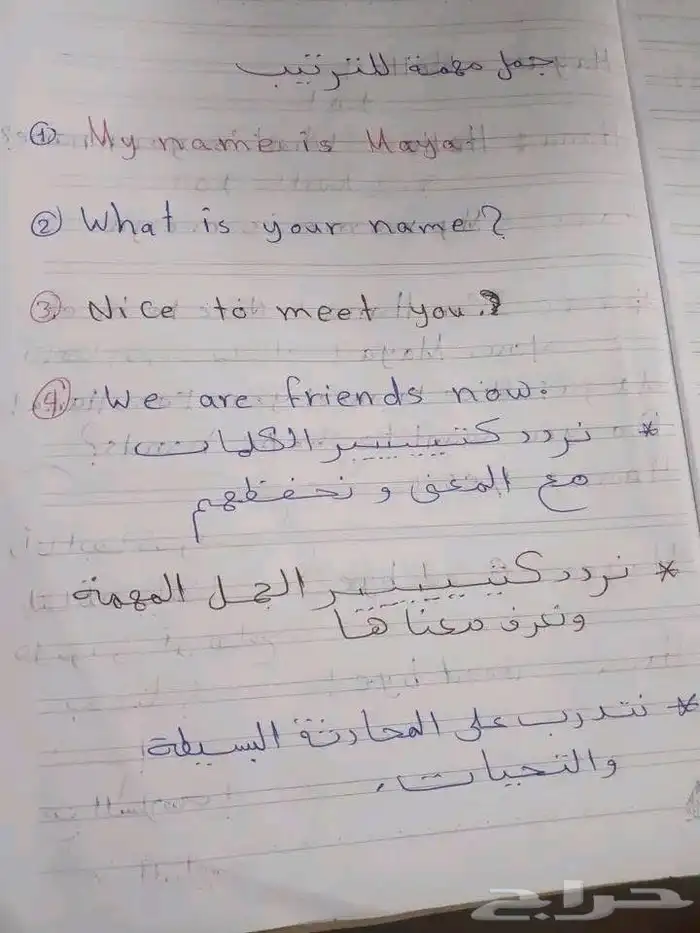 جمل مهمة للترتيب
① My name is Maya
② What is your name?
③ Nice to meet you?
④ We are friends now.
* نردد كتيييير الكلمات
مع المعنى و نحفظهم
* نردد كتيييير الجمل المهمة
ونعرف معناها
* نتدرب على المحادثة البسيطة
والتحيات.
حراج